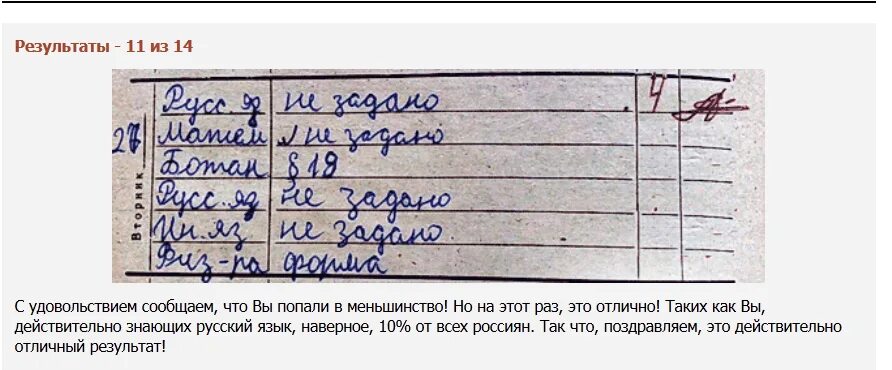 Результаты - 11 из 14
Русс. яз не задано 4
27 Матем не задано
Ботан § 19
Русс. яз не задано
Ин. яз не задано
Физ-ра форма
Вторник
С удовольствием сообщаем, что Вы попали в меньшинство! Но на этот раз, это отлично! Таких как Вы,
действительно знающих русский язык, наверное, 10% от всех россиян. Так что, поздравляем, это действительно
отличный результат!